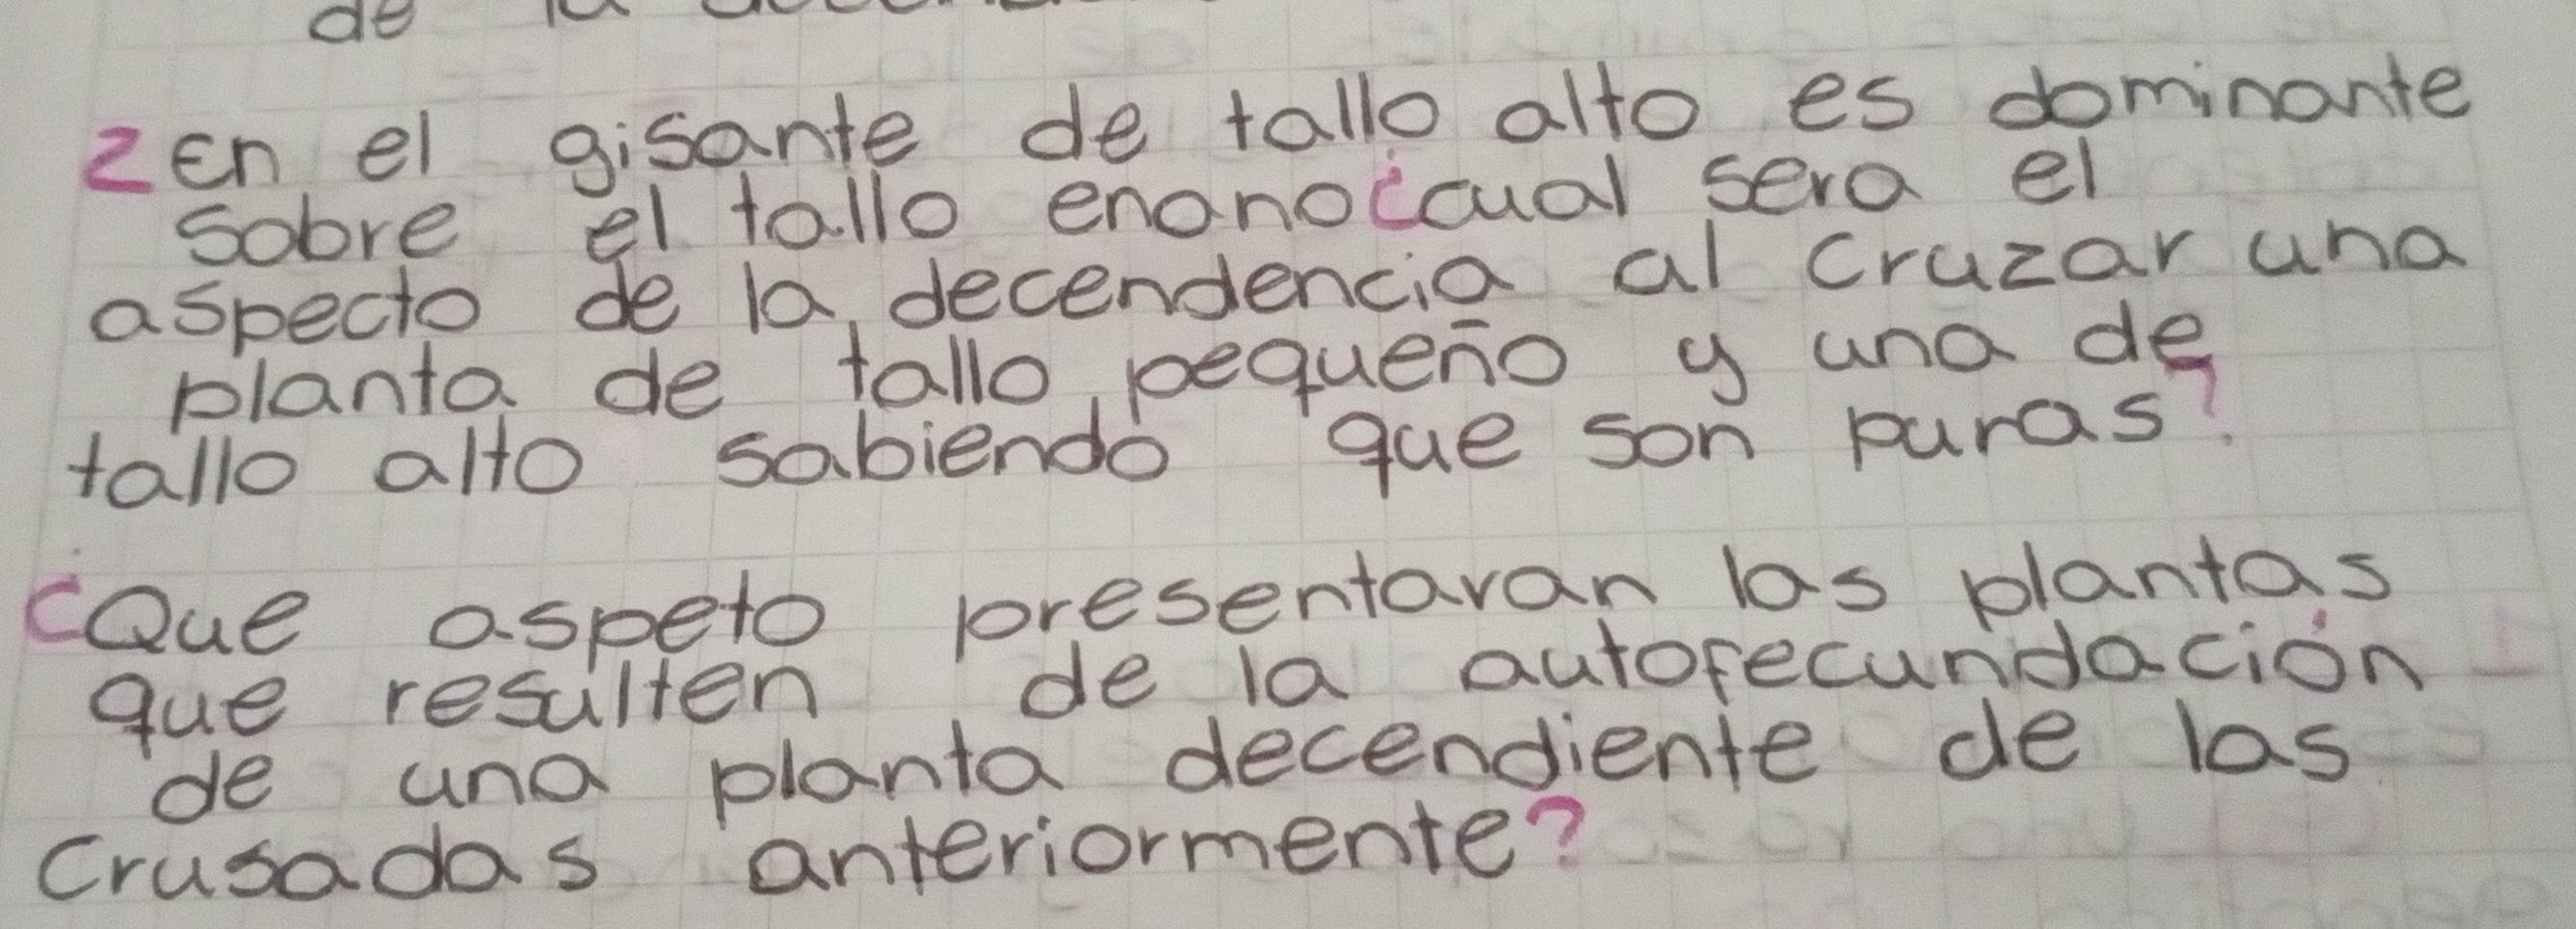 de la
2 En el gisante de tallo alto es dominante
sobre el tallo enano ¿cual sera el
aspecto de la decendencia al cruzar una
planta de tallo pequeño y una de
tallo alto sabiendo que son puras?
¿Que aspeto presentaran las plantas
que resulten de la autofecundación
de una planta decendiente de las
crusadas anteriormente?